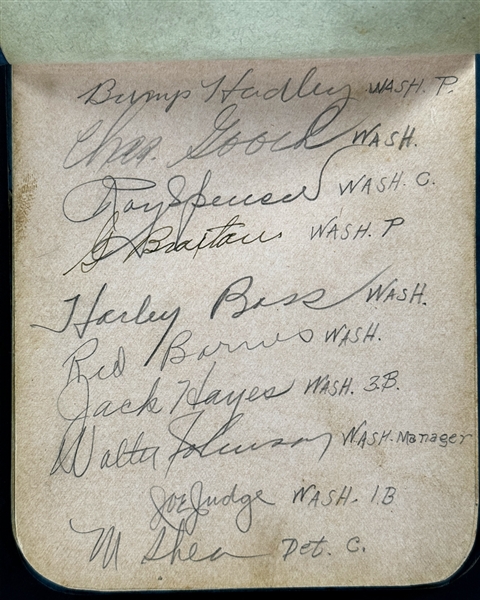 Bump Hadley WASH. P.
Chas. Gooch WASH.
Roy Spencer WASH. C.
G Braxton WASH. P
Harley Boss WASH.
Red Barnes WASH.
Jack Hayes WASH. 3B.
Walter Johnson WASH. Manager
Joe Judge WASH. 1B
M Shea Det. C.